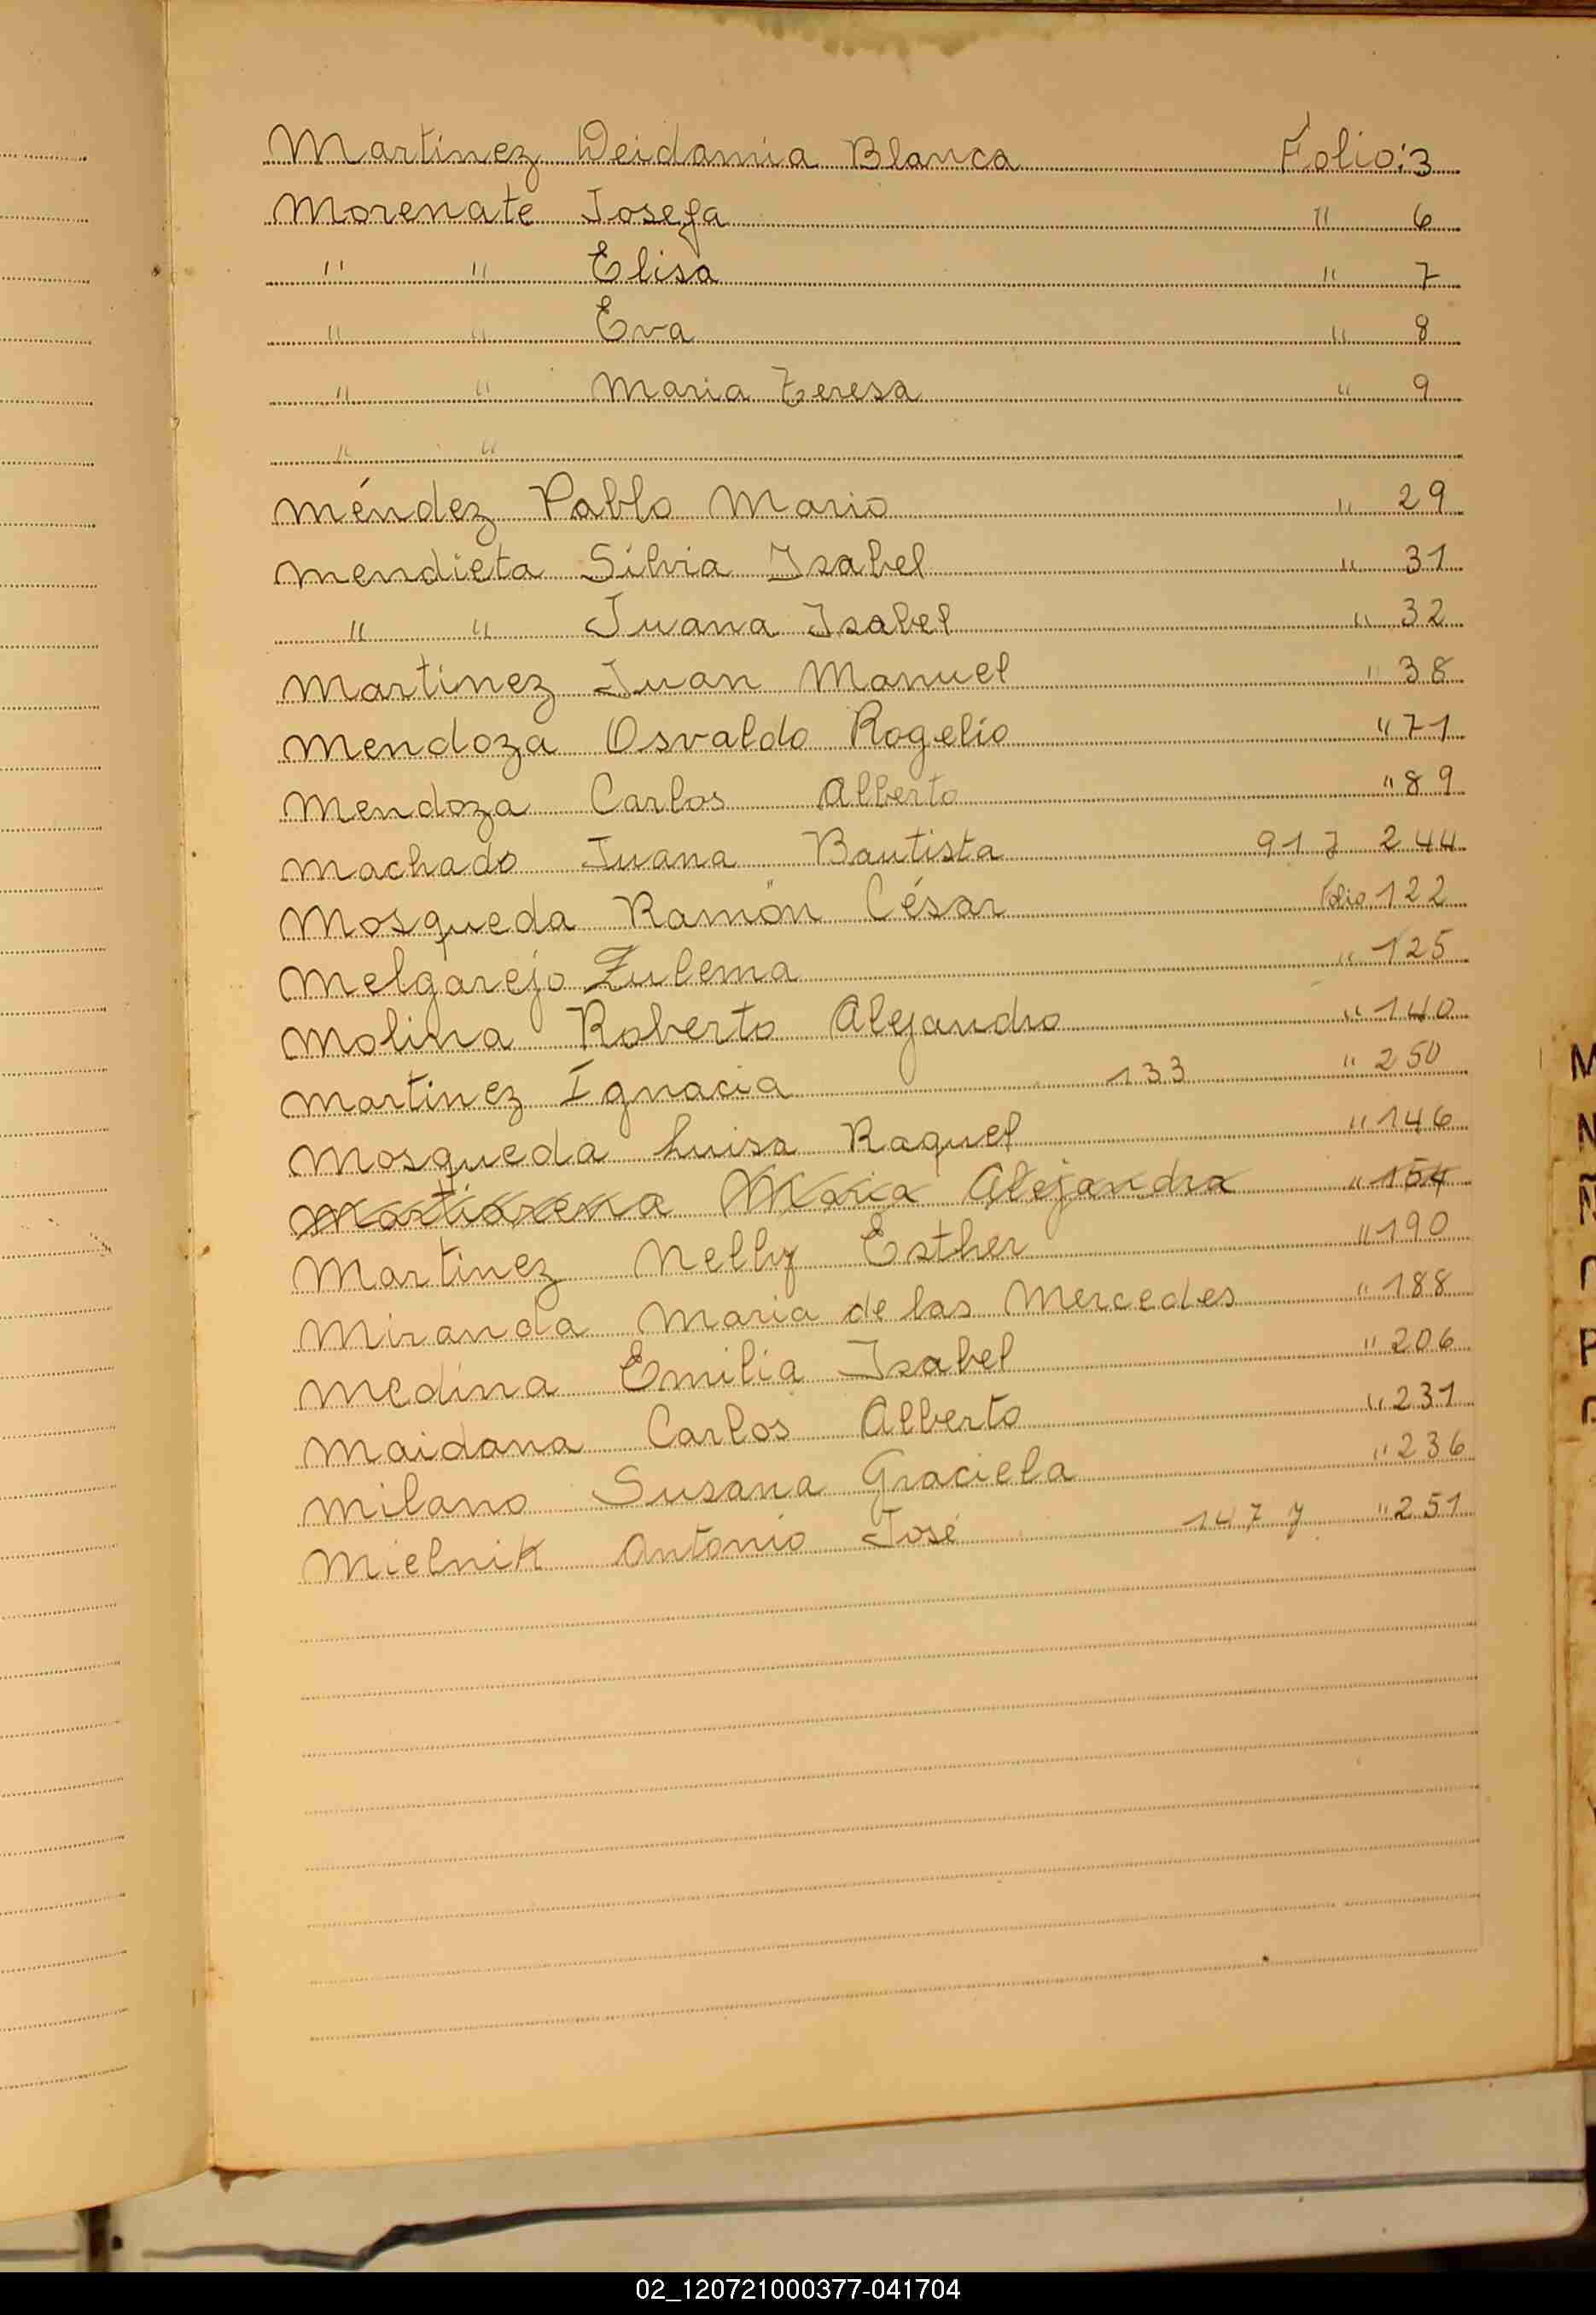 Martínez Deidamia Blanca Folio: 3
Morenate Josefa " 6
" " Elisa " 7
" " Eva " 8
" " Maria Teresa " 9
" "
Méndez Pablo Mario " 29
Mendieta Silvia Isabel " 31
" " Juana Isabel " 32
Martínez Juan Manuel " 38
Mendoza Osvaldo Rogelio " 71
Mendoza Carlos Alberto " 89
Machado Juana Bautista 91 y 244
Mosqueda Ramón César folio 122
Melgarejo Zulema " 125
Molina Roberto Alejandro " 140
Martinez Ignacia 133 " 250
Mosqueda Luisa Raquel " 146
Martiarena Maria Alejandra " 154
Martinez Nelly Esther " 190
Miranda Maria de las Mercedes " 188
Medina Emilia Isabel " 206
Maidana Carlos Alberto " 231
Milano Susana Graciela " 236
Mielnik Antonio José 147 y " 251
02_120721000377-041704